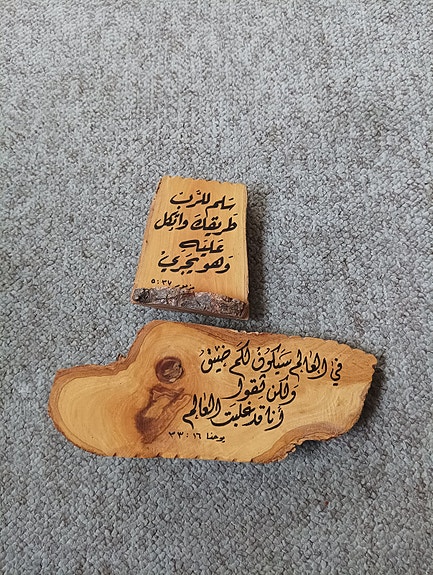 سلم للرب
طريقك واتكل
عليه
وهو يجري
مزمور ٣٧ : ٥
في العالم سيكون لكم ضيق
ولكن ثقوا
أنا قد غلبت العالم
يوحنا ١٦ : ٣٣